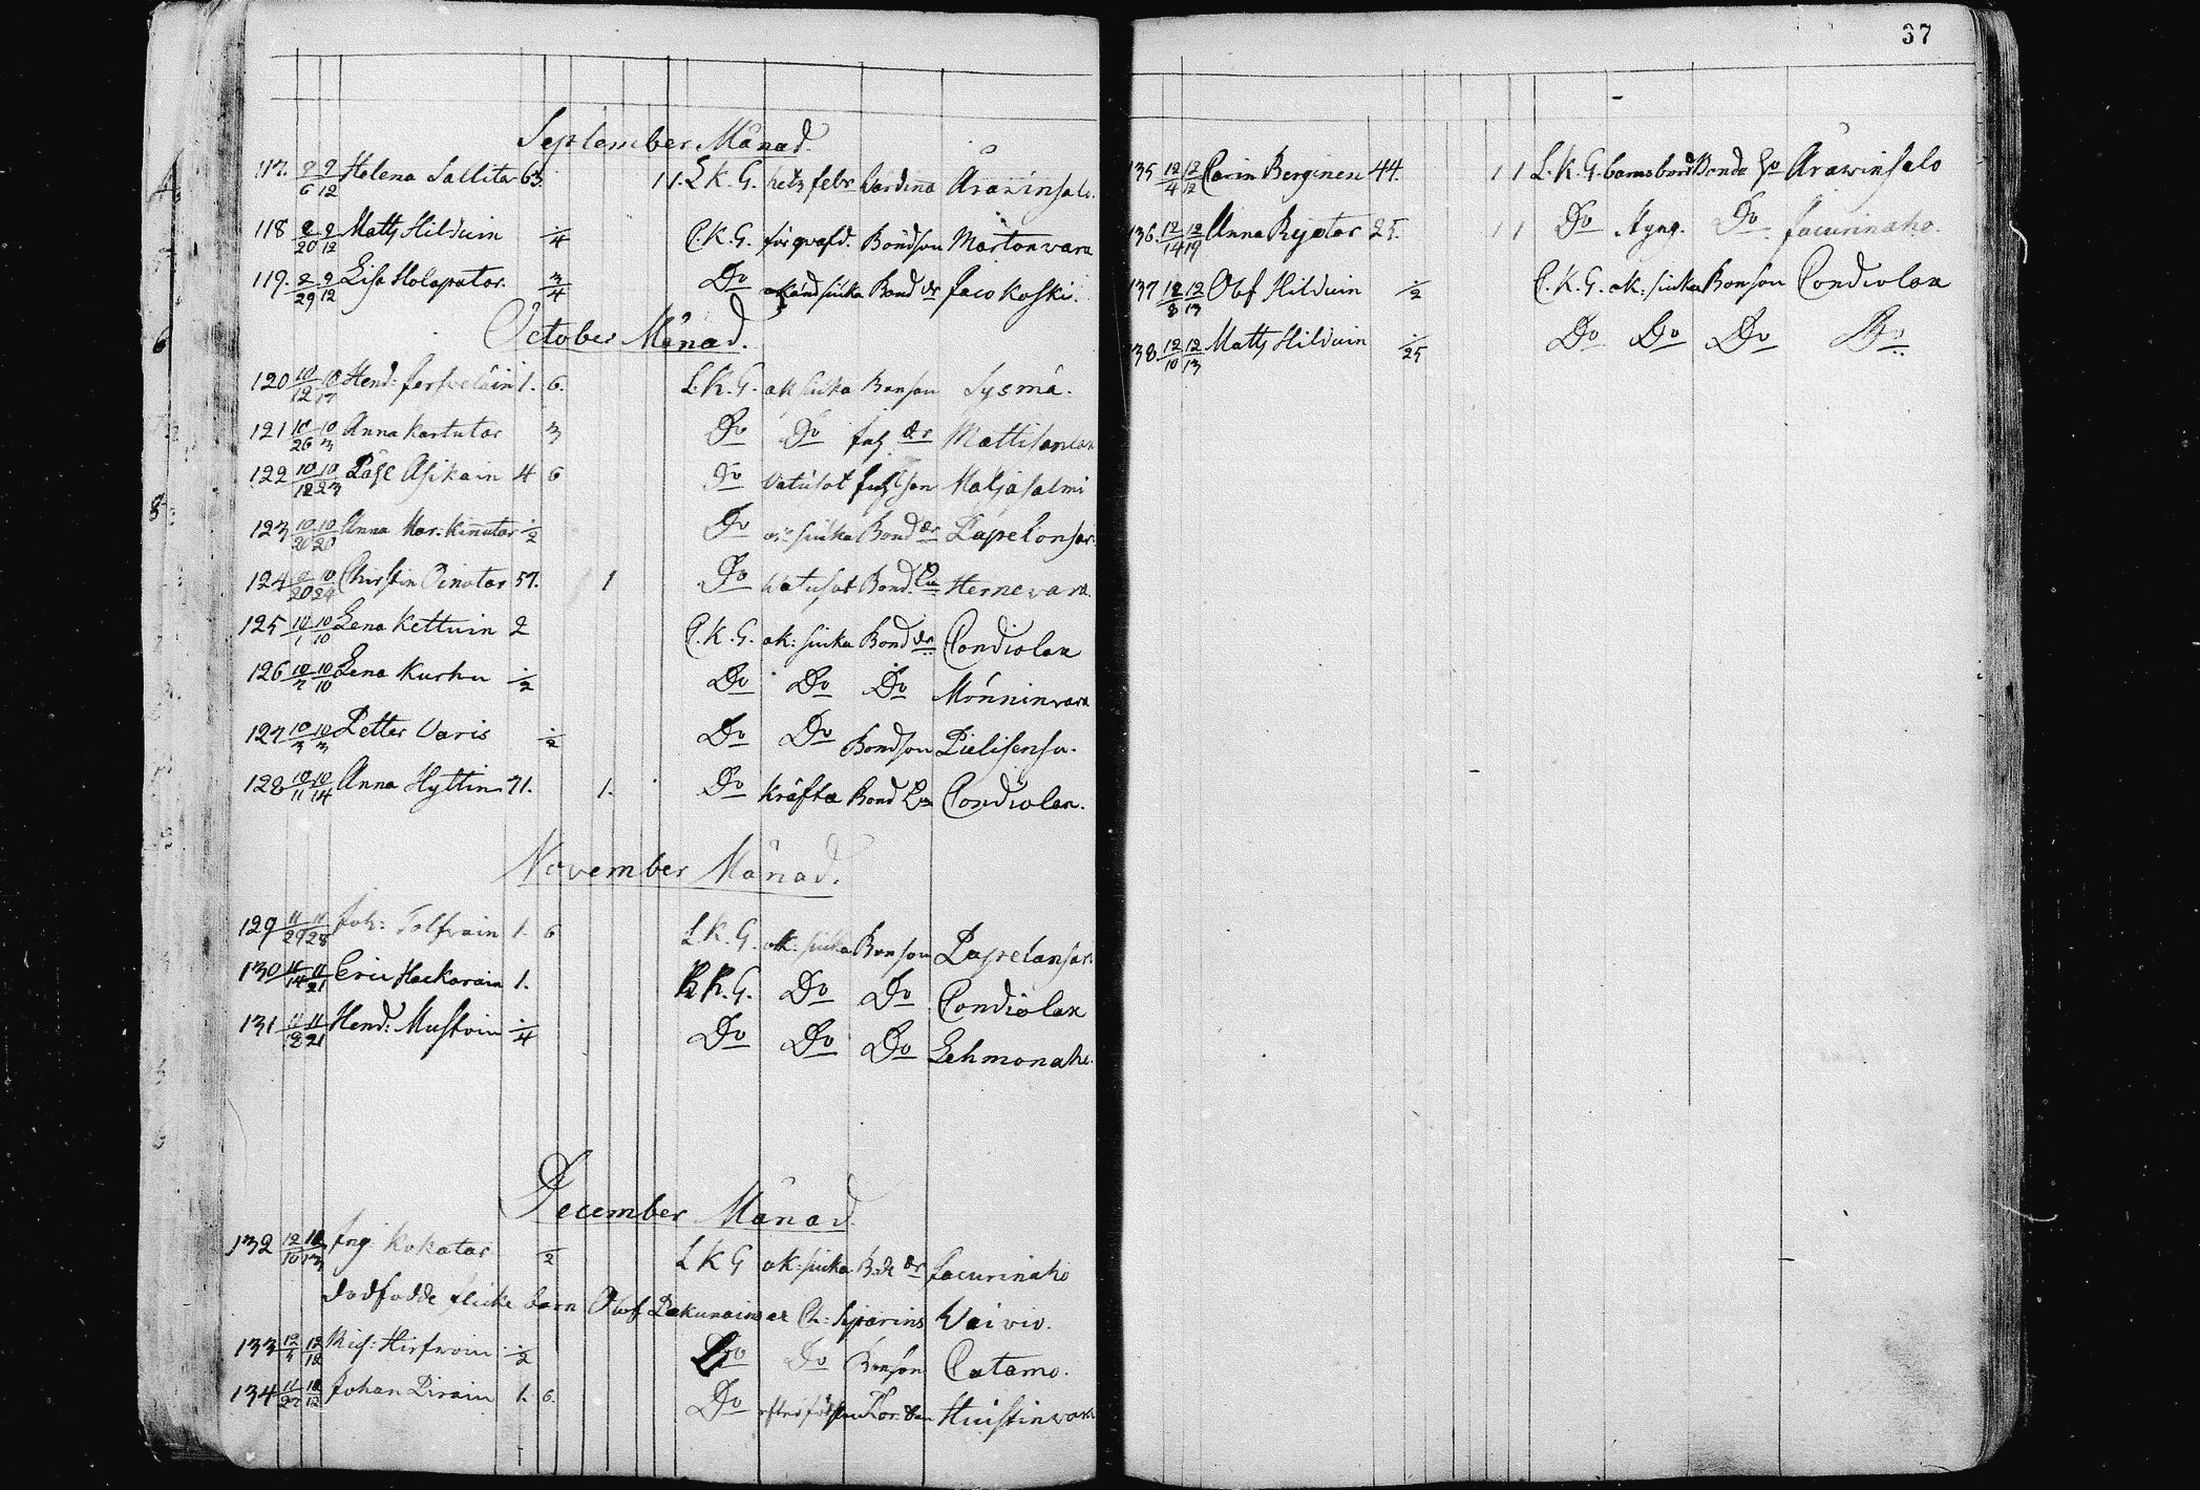 37
September Månad.
117. 9/6 9/12 Helena Sallitar 63. 1 1. L. K. G. hetz febr Värdinna Årawinsalo.
118 9/20 9/12 Matts Hilduin ./4 C. K. G. förqvafd. Bondson Martonvara
119. 9/29 9/12 Lisa Holopatar. 3/4 Do okänd siuka Bond dr Jacokoski.
October Månad.
120 10/12 10/17 Hend: 1. 6. L. K. G. ok siuka Bonson Sysmä.
121 10/26 10/3 Anna Kartutar 3 Do Do Inh dr Mattisenlax
122 10/12 10/23 Påhl Asikain 4 6 Do Vatusot Inh Son Maljasalmi
123 10/20 10/20 Anna Mar. Kinnutar ./2 Do siuka Bond dr Papelonsar.
124 10/24 Christin Pinotar 57. 1 Do Watusot Bond. Hernevara.
125 10/1 10/10 Lena Kettuin 2 C. K. G. ok: siuka Bond dr Condiolax
126 10/7 10/10 Lena Kurhu ./2 Do Do Do Mönninvara
127 10/3 10/3 Petter Varis ./2 Do Do Bondson Pielisensu.
128 10/11 10/14 Anna Hyttin 71. 1. Do Kräfta Bond Condiolax.
November Månad.
129 11/29 11/28 Joh: Tolfvain 1. 6 L. K. G. ok: siuka Bonson Papelonsar.
130 11/14 11/21 Eric Hackarain 1. K. G. Do Do Condiolax
131 11/12 11/21 Hend: Mustoin ./4 Do Do Do Lehmonaho.
December Månad.
132 12/10 12/13 Ing: Kokotar ./2 L K G ok: siuka Bde dr Jacurinaho
dödfödde flicke barn Olof Pakunains Ch: Siparins Vaivio.
133 12/4 12/12 Mich: Hirfvoin ./2 Do Do Bonson Catamo.
134 11/27 12/12 Johan Pirain 1. 6. Do Huistinvara
135 12/4 12/12 Carin Berginen 44. 1 1 L. K. G. barnsbörd Bonde Årawinsalo
136. 12/14 12/19 Anna Ryötar 25. 1 1 Do Styng. Do. Jacurinaho.
137 12/8 12/13 Olof Hilduin ./2 C. K. G. ok: siuka Bonson Condiolax
138 12/10 12/13 Matts Hilduin ./25 Do Do Do Do